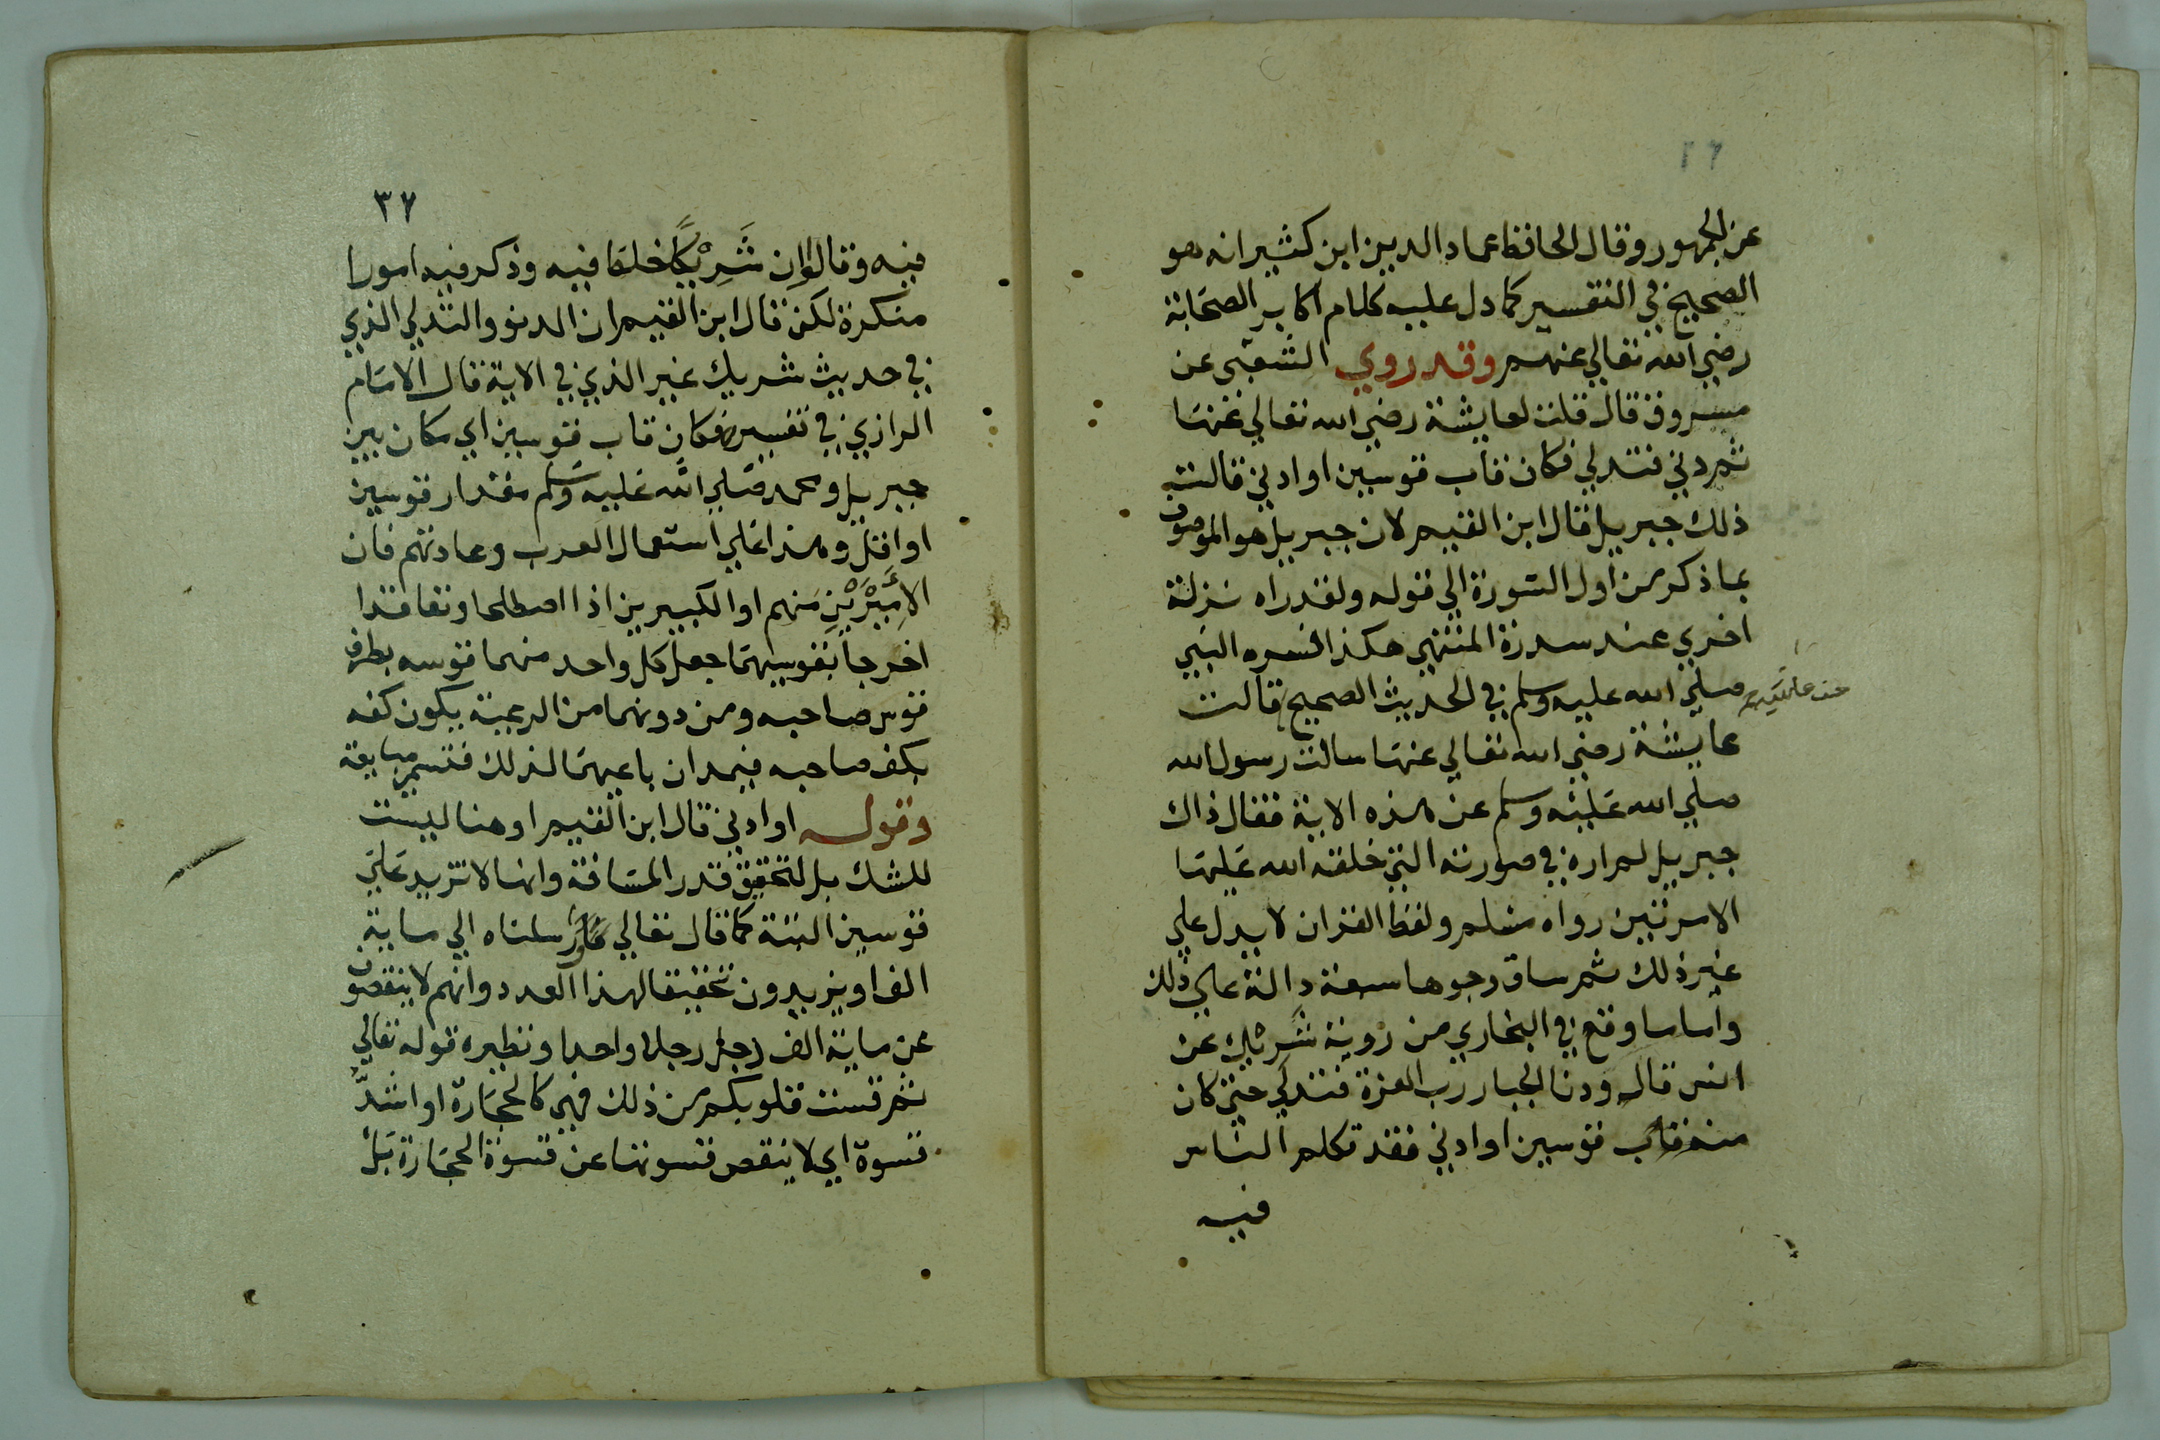 ٣٦
عن الجمهور وقال الحافظ عماد الدين ابن كثير انه هو
الصحيح في التفسير كما دل عليه كلام اكابر الصحابة
رضي الله تعالي عنهم وقد روي الشعبي عن
مسروق قال قلت لعايشة رضي الله تعالي عنها
ثم دني فتدلي فكان قاب قوسين او ادني قالت
ذلك جبريل قال ابن القيم لان جبريل هو الموصوف
بما ذكر من اول السورة الي قوله ولقد راه نزلة
اخري عند سدرة المنتهي هكذا فسره النبي
صلي الله عليه وسلم في الحديث الصحيح قالت
عايشة رضي الله تعالي عنها سالت رسول الله
صلي الله عليه وسلم عن هذه الاية فقال ذاك
جبريل لم اره في صورته التي خلقه الله عليها
الا مرتين رواه مسلم ولفظ القران لا يدل علي
غير ذلك ثم ساق وجوها سبعة دالة علي ذلك
واما ما وقع في البخاري من روية شريك عن
انس قال ودنا الجبار رب العزة فتدلي حتي كان
منه قاب قوسين او ادني فقد تكلم الناس
فيه
٣٧
فيه وقالوا ان شريكا خلط فيه وذكر فيه امورا
منكرة لكن قال ابن القيم ان الدنو والتدلي الذي
في حديث شريك غير الذي في الاية قال الامام
الرازي في تفسيره فكان قاب قوسين اي مكان بين
جبريل ومحمد صلي الله عليه وسلم مقدار قوسين
او اقل وهذا علي استعمال العرب وعادتهم فان
الاميرين منهم او الكبيرين اذا اصطلحا وتعاقدا
اخرجا بقوسيهما جعل كل واحد منهما قوسه بطرف
قوس صاحبه ومن دونهما من الرعية يكون كفه
بكف صاحبه فيمدان باعيهما لذلك فتسمي مبايعة
وقوله او ادني قال ابن القيم او هنا ليست
للشك بل لتحقيق قدر المسافة وانها لا تزيد علي
قوسين البتة كما قال تعالي وارسلناه الي ماية
الف او يزيدون تحقيقا لهذا العدد وانهم لا ينقصون
عن ماية الف رجل رجلا واحدا ونظيره قوله تعالي
ثم قست قلوبكم من ذلك فهي كالحجارة او اشد
قسوة اي لا ينقص قسوتها عن قسوة الحجارة بل